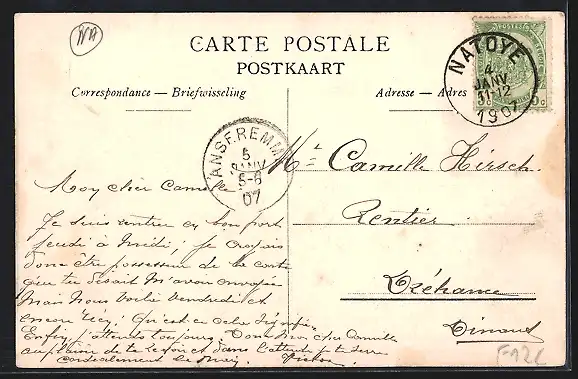 CARTE POSTALE
POSTKAART
Correspondance — Briefwisseling
Adresse — Adres
NATOYE
4
JANV
11-12
1907
ANSEREMME
5
JANV
5-6
07
Mr Camille Hirsch
Rentier
Dréhance
Dinant
Mon cher Camille
Je suis rentré en bon port
jeudi à midi, je croyais
donc être possesseur de la carte
que tu disait m'avoir envoyée
Mais nous voilà vendredi et
encore rien! Qu'est ce
Enfin j'attends toujours. Donc mon cher Camille
au plaisir de te revoir et dans l'attente je te serre
cordialement la main.